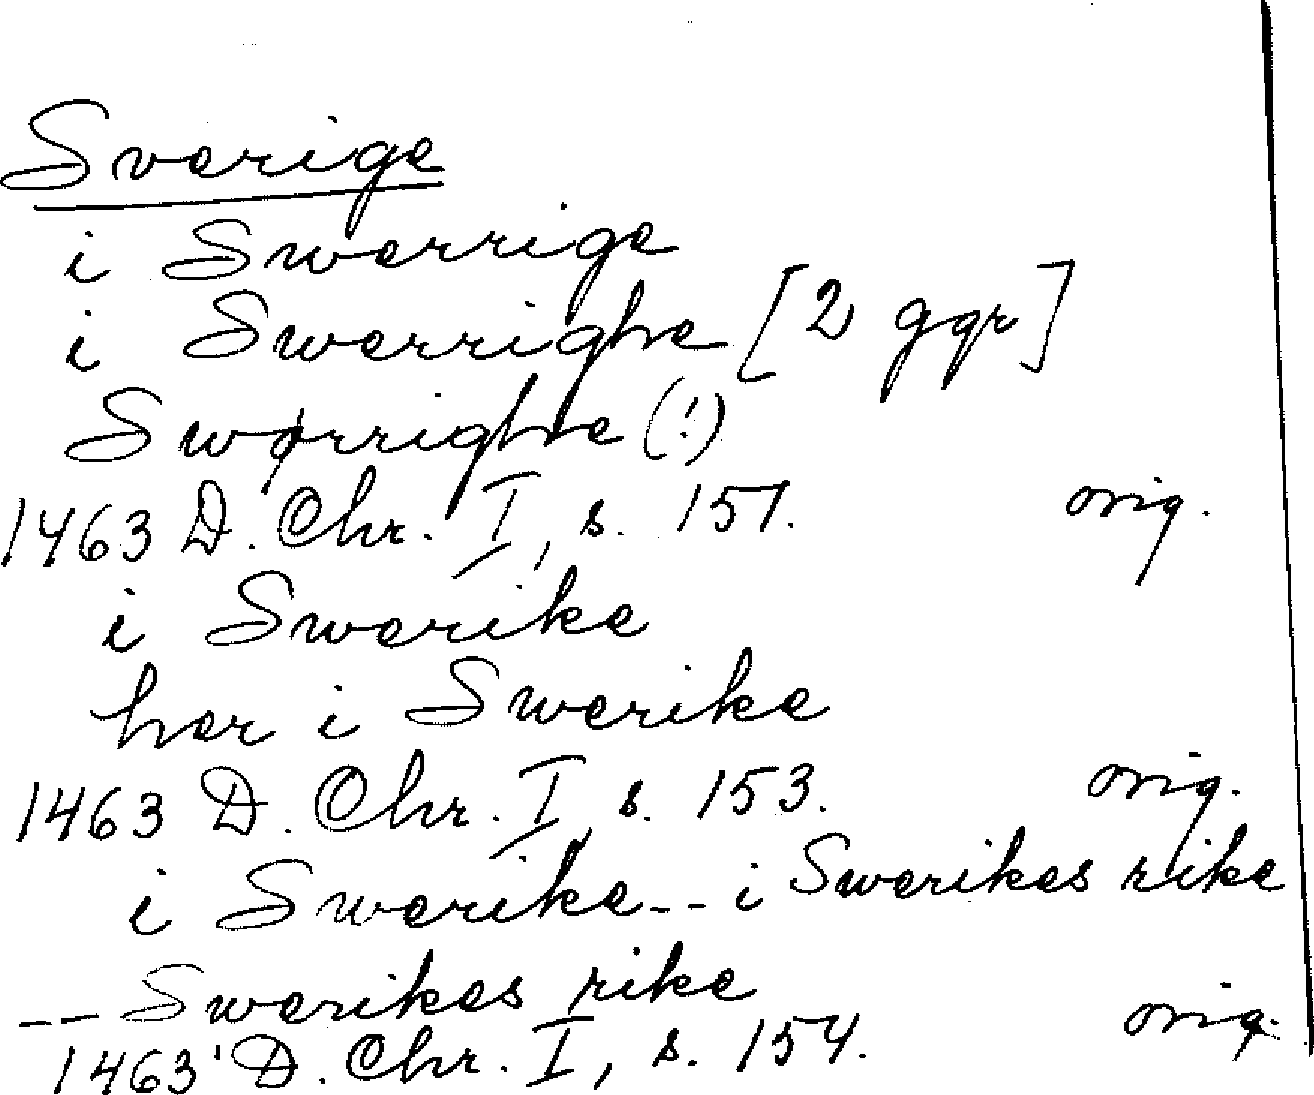 Sverige
i Swerrige
i Swerrighe [2 ggr]
Swørrighe (!)
1463 D. Chr. I, s. 151. orig.
i Swerike
her i Swerike
1463 D. Chr. I, s. 153. orig.
i Swerike -- i Swerikes rike
-- Swerikes rike
1463 D. Chr. I, s. 154. orig.